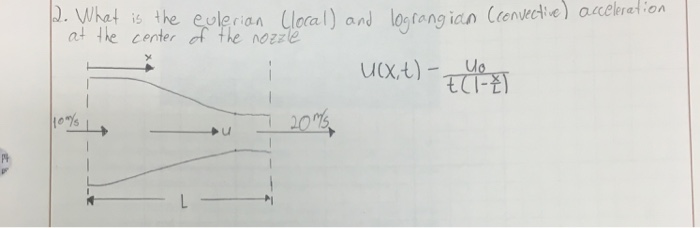 2. What is the eulerian (local) and lograngian (convective) acceleration
at the center of the nozzle
x
U(x,t) - U₀ / t(1-x/L)
10 m/s
u
20 m/s
L